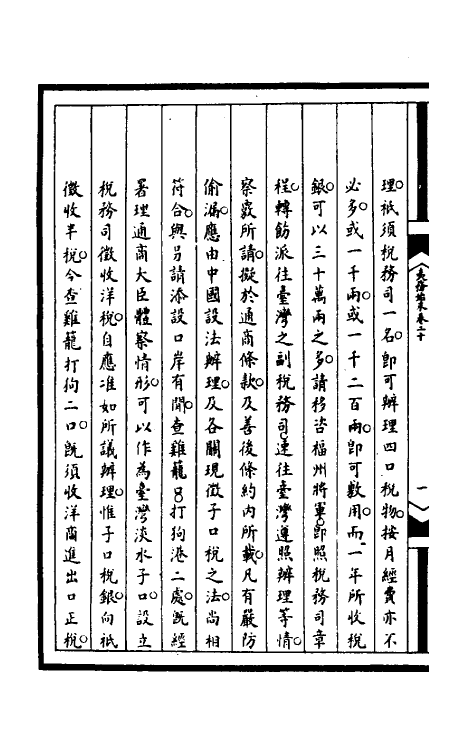 理。祇須稅務司一名。卽可辦理四口稅物。按月經費亦不
必多。或一千兩。或一千二百兩。卽可敷用。而一年所收稅
銀。可以三十萬兩之多。請移咨福州將軍。卽照稅務司章
程。轉飭派往臺灣之副稅務司。速往臺灣遵照辦理等情。
察覈所請。擬於通商條款。及善後條約內所載。凡有嚴防
偷漏。應由中國設法辦理。及各關現徵子口稅之法。尚相
符合。與另請添設口岸有間。查雞籠口。打狗港二處。旣經
署理通商大臣體察情形。可以作為臺灣淡水子口。設立
稅務司徵收洋稅。自應准如所議辦理。惟子口稅銀。向祇
徵收半稅。今查雞籠打狗二口。旣須收洋商進出口正稅。
卷二十
一